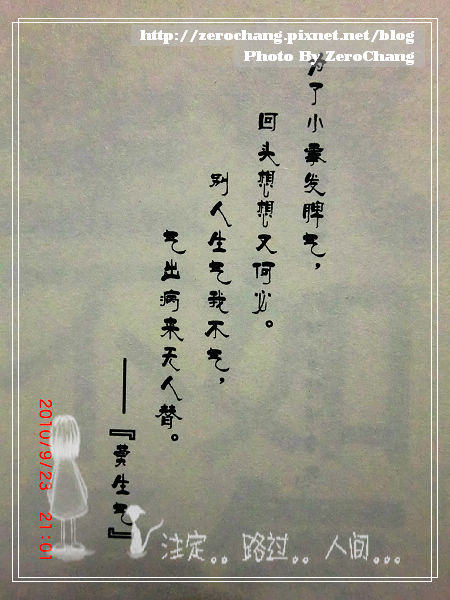 http://zerochang.pixnet.net/blog
Photo By ZeroChang
为了小事发脾气,
回头想想又何必。
别人生气我不气,
气出病来无人替。
——『莫生气』
2010/9/23 21:01
注定。。路过。。人间。。。